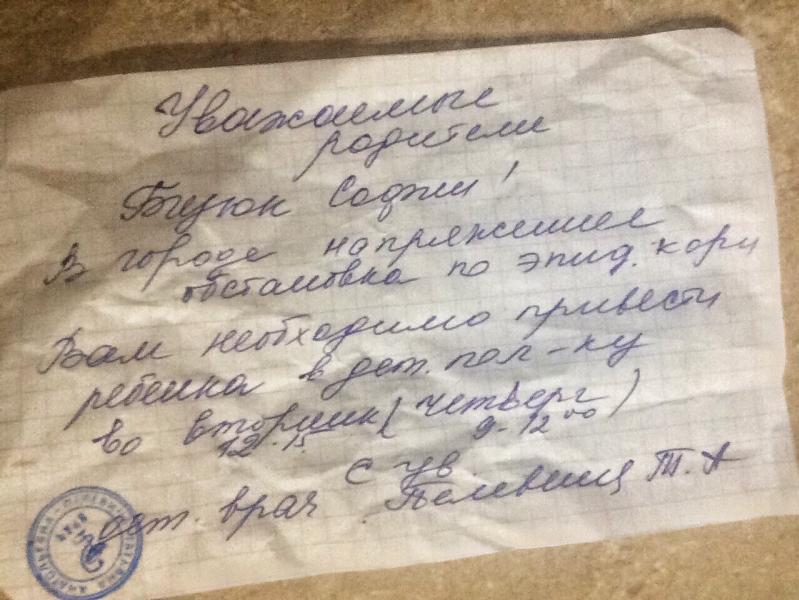 Уважаемые
родители
Софии!
В городе напряженная
обстановка по эпид. кори
Вам необходимо привести
ребенка в дет. пол-ку
во вторник (четверг)
12-15 9-12 00
с ув
дет. врач Т. А